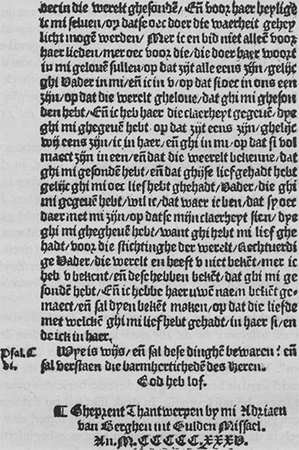 hen in die werelt ghesonden/ Eñ voor haer heylighe
ic mi seluen/ op datse oec doer die waerheit gehey
licht mogē werden/ Mer ic en bid niet alleē voor
haer lieden/ mer oec voor die/ die doer haer woort
in mi gelouē sullen/ op dat zijt alle eens zijn/ gelijc
ghi Vader in mi/ eñ ic in v/ op dat si oec in ons eens
zijn/ op dat die werelt gheloue/ dat ghi mi ghesonden
hebt/ Eñ ic heb haer die claerheyt gegeuē/ dye
ghi mi ghegeuē hebt op dat zijt eens zijn/ ghelijc
wij eens zijn/ ic in haer/ eñ ghi in mi/ op dat si vol
maect zijn in een/ eñ dat die weerelt bekenne/ dat
ghi mi gesonden hebt/ eñ dat ghijse lief gehadt hebt
gelijc ghi mi oec lief hebt ghehadt/ Vader/ die ghi
mi gegeuē hebt/ wil ic/ dat waer ic ben/ dat sy oec
daer met mi zijn/ op datse mijn claerheyt sien/ dye
ghi mi ghegheuē hebt/ want ghi hebt mi lief ghe
hadt/ voor die stichtinghe der werelt/ Rechtuerdi
ge Vader/ die werelt en heeft v niet bekēt/ mer ic
heb v bekent/ eñ dese hebben bekēt/ dat ghi mi ge
sondē hebt/ Eñ ic hebbe haer uwē naem bekēt ge
maect/ eñ sal dyen bekēt maken/ op dat die liefde
met welckē ghi mi lief hebt gehadt/ in haer si/ en
de ick in haer.
Psal. C
vi.
Wye is wijs/ eñ sal dese dinghē bewaren? eñ
sal verstaen die barmherticheden des Heren.
God heb lof.
¶ Gheprent Thantwerpen by mi Adriaen
van Berghen int Gulden Missael.
An. M.CCCCC.XXXV.